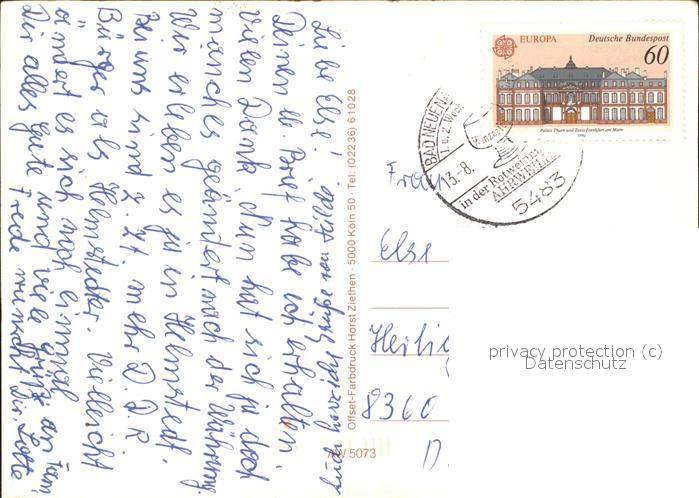 Liebe Else
Deinen lb. Brief habe ich erhalten,
vielen Dank. Nun hat sich ja doch
manches geändert nach der Währung.
Wir erleben es ja in Helmstedt.
Bei uns sind z. Zt mehr D.D.R
Bürger als Helmstedter. Vielleicht
ändert es sich noch einmal
Dir alles gute und viele Grüße an Fam.
Frede wünscht Dir Lotte
Auch herzliche Grüße von
Offset-Farbdruck Horst Ziethen · 5000 Köln 50 · Tel: (02236) 61028
AW 5073
EUROPA
Deutsche Bundespost
60
Palais Thurn und Taxis Frankfurt am Main
1990
BAD NEUEN
1. u. 2. Woch
13.-8.
in der Rotwein
AHRWEIL
5483
Frau
Else
Heilig
8360
D
privacy protection (c)
Datenschutz